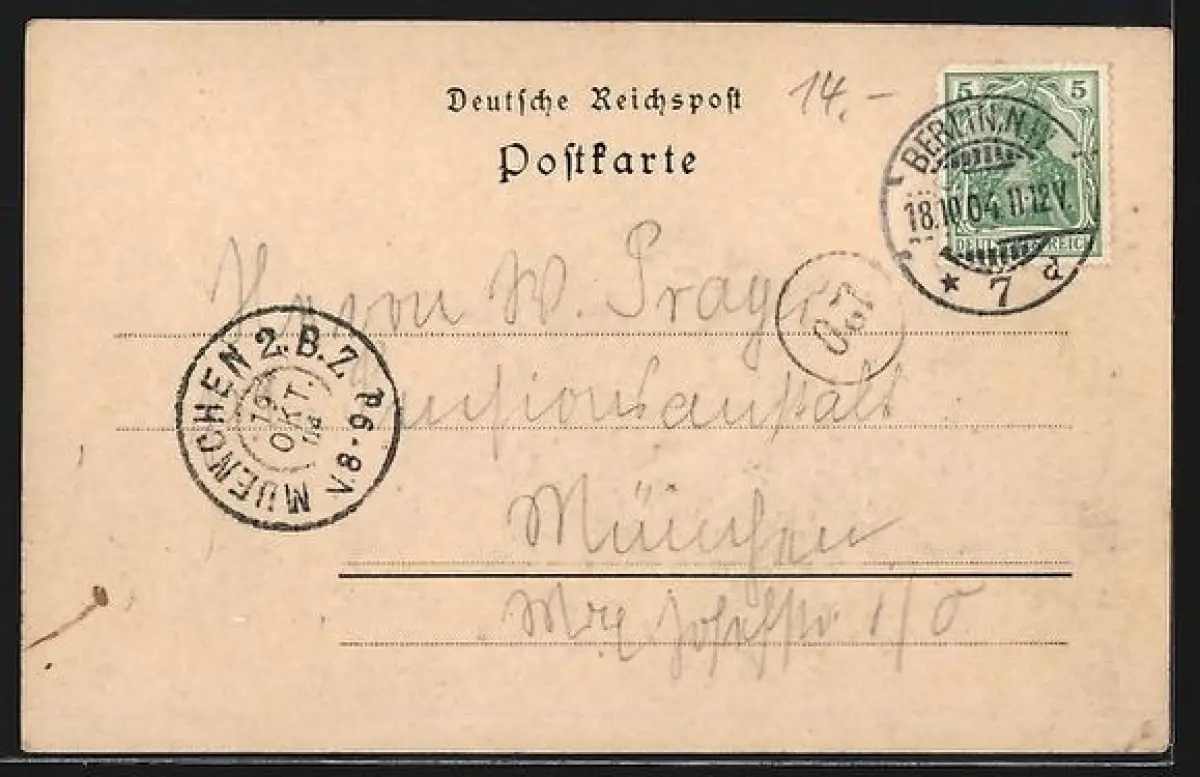 Deutsche Reichspost
14.-
Postkarte
5 5
DEUTSCHES REICH
BERLIN, N.W.
18.10.04.11-12V.
* 7 d
W. Prager
Pensionsanstalt
München
MUENCHEN 2.B.Z.
19 OKT. 04
V.8-9 a